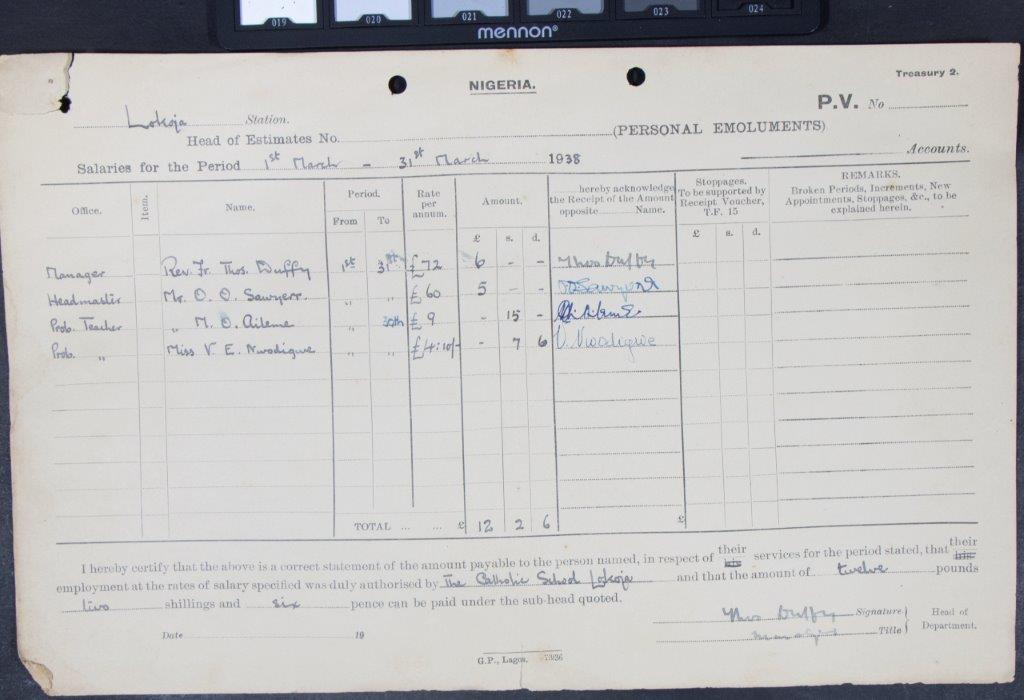 019 020 021 022 023 024
mennon®
Treasury 2.
NIGERIA.
P.V. No
Lokoja Station.
Head of Estimates No. (PERSONAL EMOLUMENTS)
Accounts.
Salaries for the Period 1st March - 31st March 1938
Office. Item. Name. Period. From To Rate per annum. Amount. £ s. d. hereby acknowledge the Receipt of the Amount opposite Name. Stoppages. To be supported by Receipt Voucher, T.F. 15 £ s. d. REMARKS. Broken Periods, Increments, New Appointments, Stoppages, &c., to be explained herein.
Manager Rev. Fr. Thos. Duffy 1st 31st £72 6 - - Thos Duffy
Headmaster Mr. O. O. Sawyerr. " " £60 5 - -
Prob. Teacher " M. O. Aileme " 30th £9 - 15 -
Prob. " Miss V. E. Nwodigwe " " £4:10/- - 7 6 V. Nwodigwe
TOTAL ... ... £ 12 2 6 £
I hereby certify that the above is a correct statement of the amount payable to the person named, in respect of their his services for the period stated, that their his
employment at the rates of salary specified was duly authorised by The Catholic School Lokoja and that the amount of twelve pounds
two shillings and six pence can be paid under the sub-head quoted.
Thos Duffy Signature. Head of Department.
Date 19 Title
G.P., Lagos.